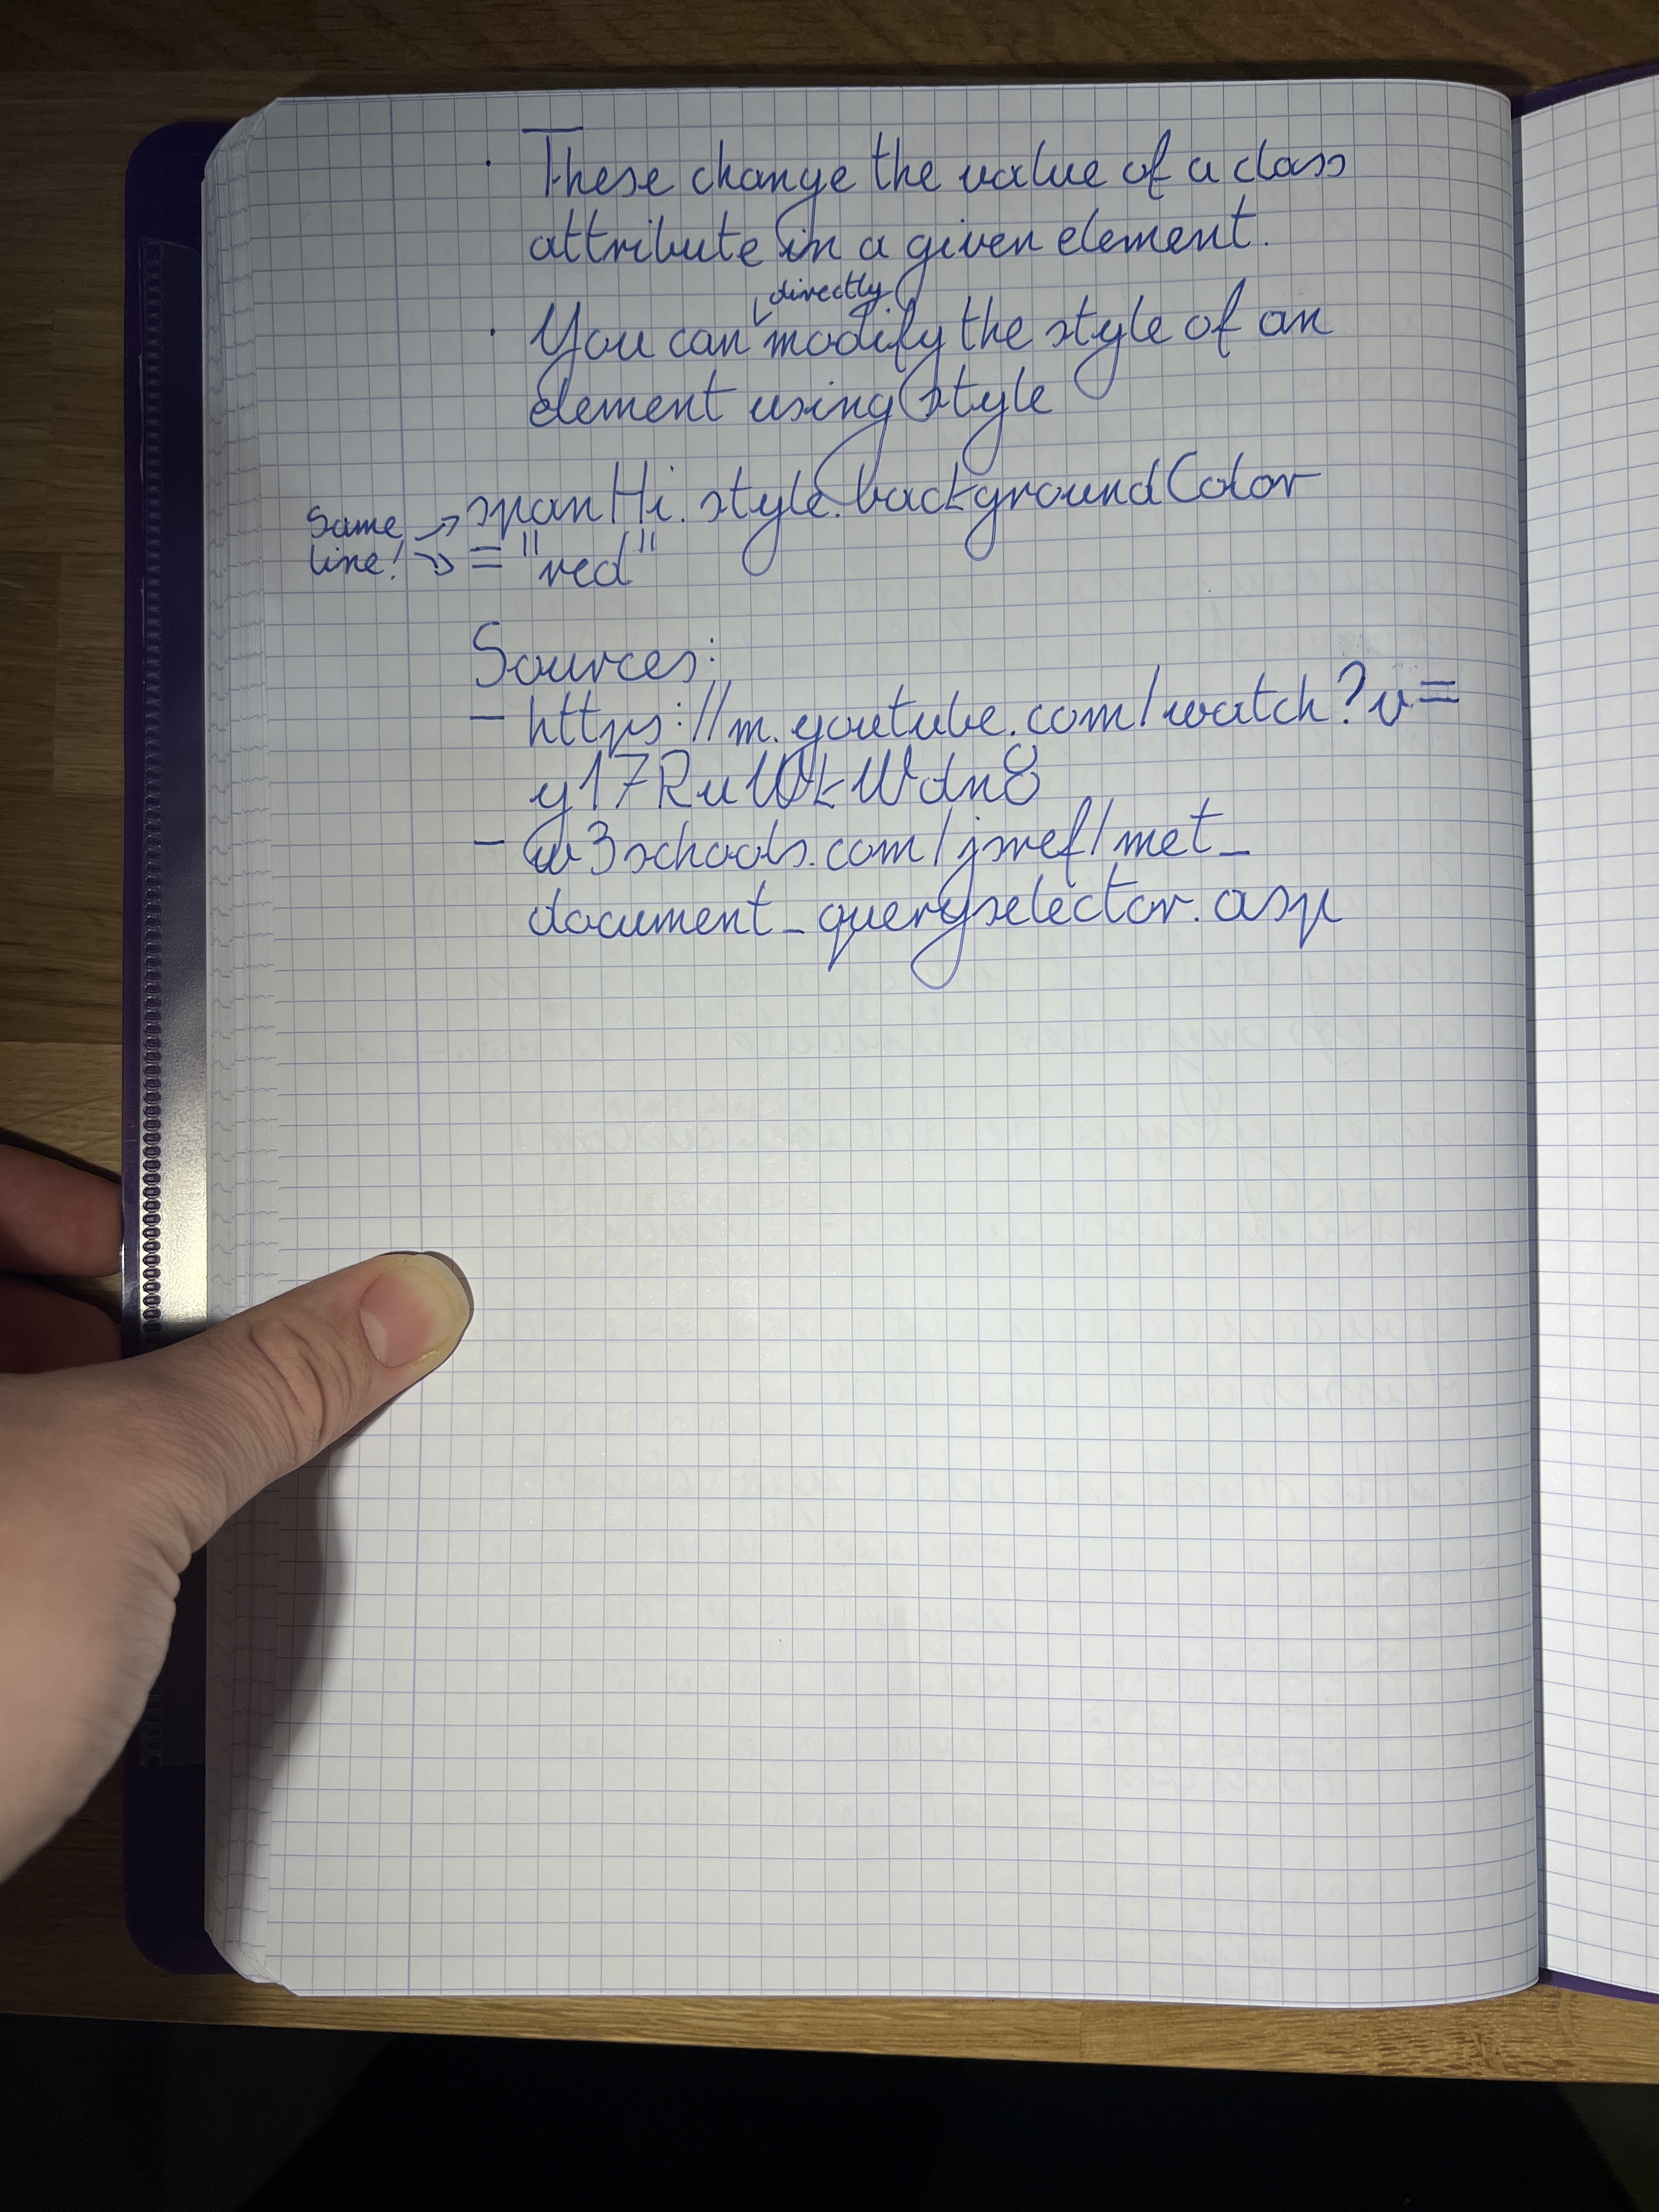 · These change the value of a class
attribute in a given element.
directly
· You can modify the style of an
element using style
Same → spanHi.style.backgroundColor
line! → = "red"
Sources:
- https://m.youtube.com/watch?v=
y17RuWkWdn8
- w3schools.com/jsref/met_
document_queryselector.asp